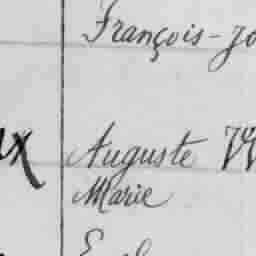 François-Jo
ux Auguste W
Marie